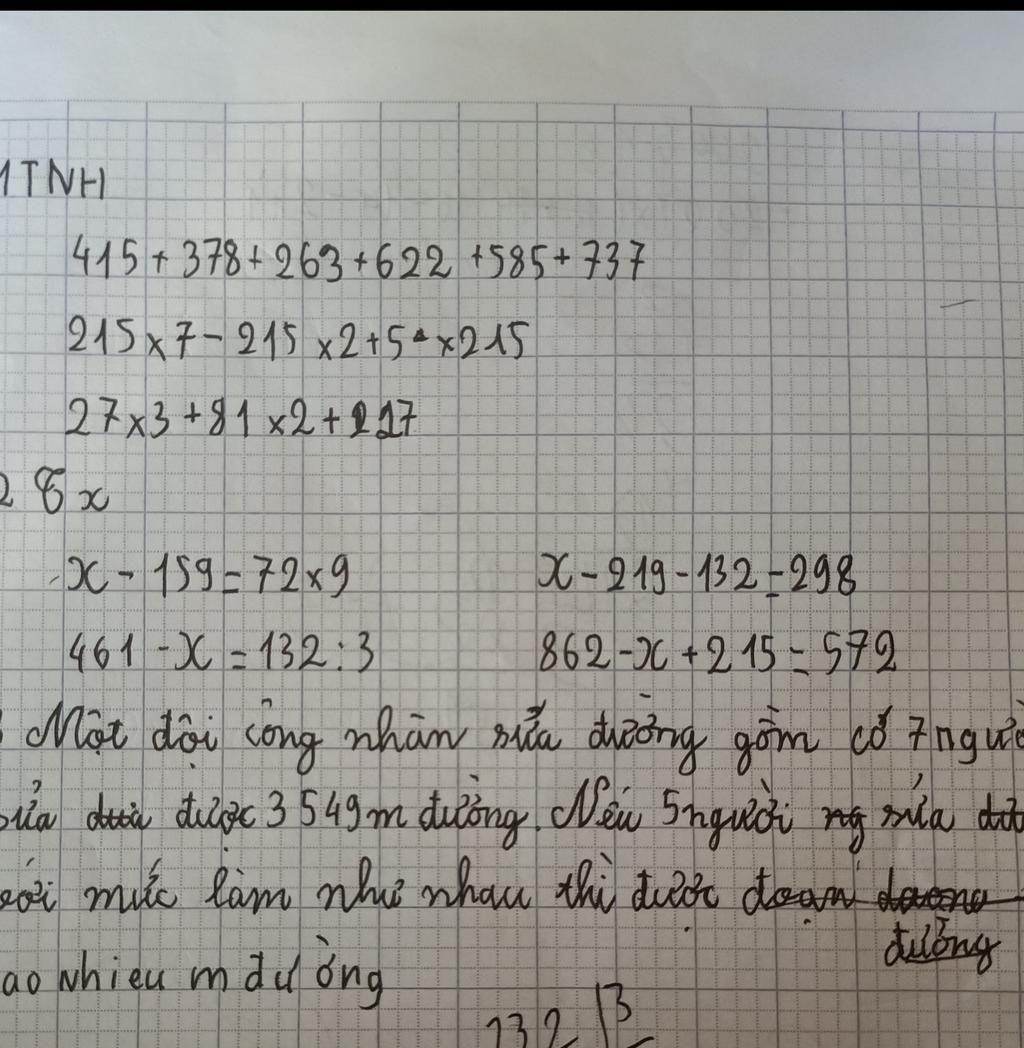 1TNH
415 + 378 + 263 + 622 + 585 + 737
215 x 7 - 215 x 2 + 5 x 215
27 x 3 + 81 x 2 +
2 x
x - 159 = 72 x 9 x - 219 - 132 = 298
461 - x = 132 : 3 862 - x + 215 = 572
Một đội công nhân sửa đường gồm có 7 ngườ
sửa được 3 549m đường. Nếu 5 người sửa
với mức làm như nhau thì được đoạn
đường
ao nhieu m đường
132 3